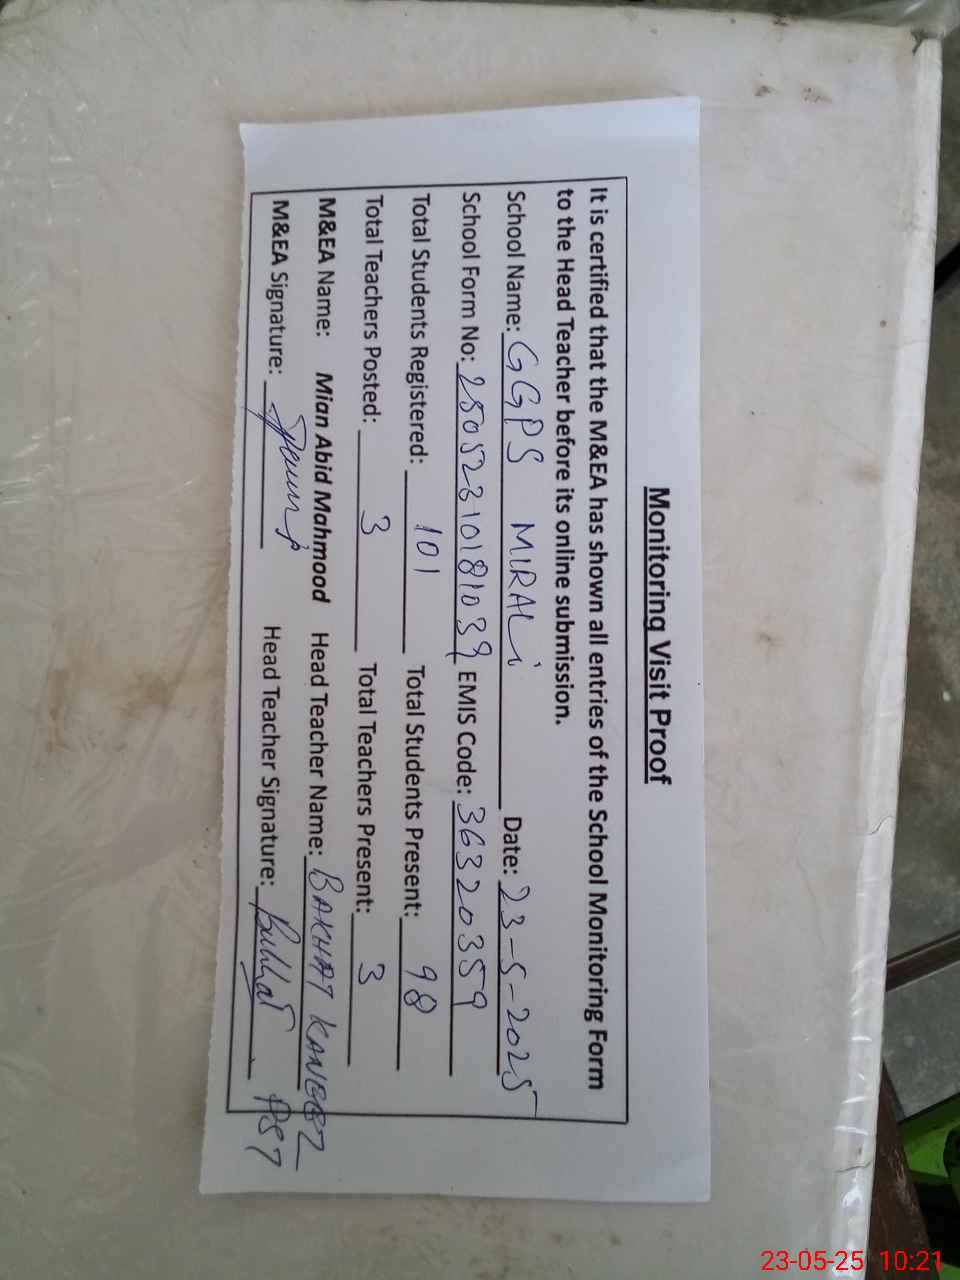 Monitoring Visit Proof
It is certified that the M&EA has shown all entries of the School Monitoring Form
to the Head Teacher before its online submission.
School Name: GGPS MIRALi Date: 23-5-2025
School Form No: 25052310181039 EMIS Code: 36320359
Total Students Registered: 101 Total Students Present: 98
Total Teachers Posted: 3 Total Teachers Present: 3
M&EA Name: Mian Abid Mahmood Head Teacher Name: BAKHAT KANEEZ
M&EA Signature: Head Teacher Signature: Bakhat PST
23-05-25 10:21